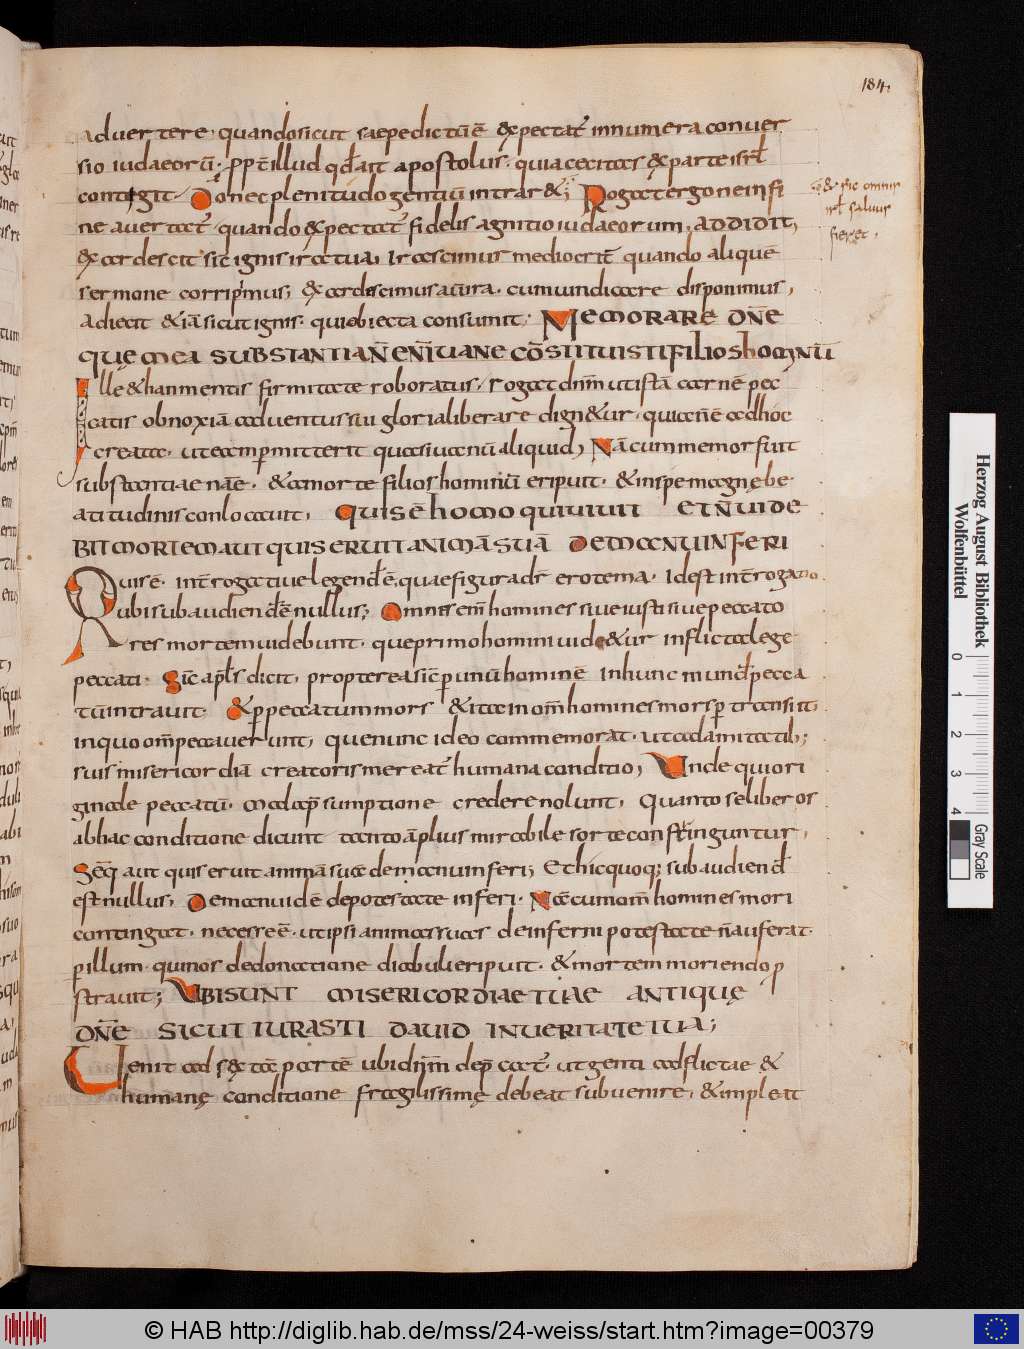 184.
aduertere, quando sicut saepe dictū ē expectat̄ innumera conuer
sio iudaeorū. ppt̄ illud qđ ait apostolus. quia cecitas ex parte isrł
contigit. Donec plenitudo gentiū intrar&; Rogat ergo ne in fi
ne auertat̄. quando expectat̄ fidelis agnitio iudaeorum, addidit,
exardescit sic̄ ignis ira tua, Irascimus mediocrit̄ quando aliquē
sermone corripimus; exardescimus autura. cum uindicare disponimus,
adiecit & iā sicut ignis. qui obiecta consumit; MEMORARE DN̄E
QUĘ MEA SUBSTANTIA N̄ ENĪ UANE CŌSTITUISTI FILIOS HOMINŪ
Ille &han mentis firmitate roboratus, rogat dnm̄ ut istā carnē pec
catis obnoxiā aduentus sui gloria liberare dign&ur, qui eā n̄ē ad hoc
creata, ut eā ipm̄ mitterit quasi uacuū aliquid, Nā cum memor fuit
substantiae nr̄ae, & a morte filios hominū eripuit, & in spe magnę be
atitudinis conlocauit, QUIS Ē HOMO QUI UIUIT ET N̄ UIDE
BIT MORTEM AUT QUIS ERUIT ANIMĀ SUĀ DE MANU INFERI
Quis ē. int̄rogatiue legendē, quae figura dr̄ erotema. Id est int̄rogatio
ubi subaudiendē nullus; Omnes em̄ homines siue iusti siue peccato
res mortem uidebunt, que primo homini uid&ur inflicta lege
peccati. Sic̄ apłs dicit, propterea sic̄ p unū hominē in hunc mundū pecca
tū intrauit. & p peccatum mors & ita in om̄ homines mors p transiit,
in quo om̄ peccauerunt, que nunc ideo commemorat, ut cladamitatib;
suis misericordiā creatoris mereat̄ humana conditio, Unde qui ori
ginale peccatū. mala psumptione credere nolunt, Quanto se liberos
ab hac conditione dicunt tanto āplius mirabile sorte constringuntur,
Seq̄ aut quis eruit animā suā de manu inferi; Et hic quoq; subaudiend
est nullus; De manu id ē de potestate inferi. Nā cum om̄ homines mori
contingat, necesse ē, ut ipsi animas suas de inferni potestate n̄ auferat.
p illum. qui nos de donatione diabuli eripuit. & mortem moriendo p
strauit; UBI SUNT MISERICORDIAE TUAE ANTIQUĘ
DN̄E SICUT IURASTI DAUID IN UERITATE TUA;
Uenit ad sextā partē ubi dnm̄ dep̄cat̄, ut genti adflictae &
humanę conditione fragilissimę debeat subuenire, & impleat
& sic omnis
isrł saluus
fieret,
Herzog August Bibliothek
Wolfenbüttel
0 1 2 3 4
Gray Scale
© HAB http://diglib.hab.de/mss/24-weiss/start.htm?image=00379